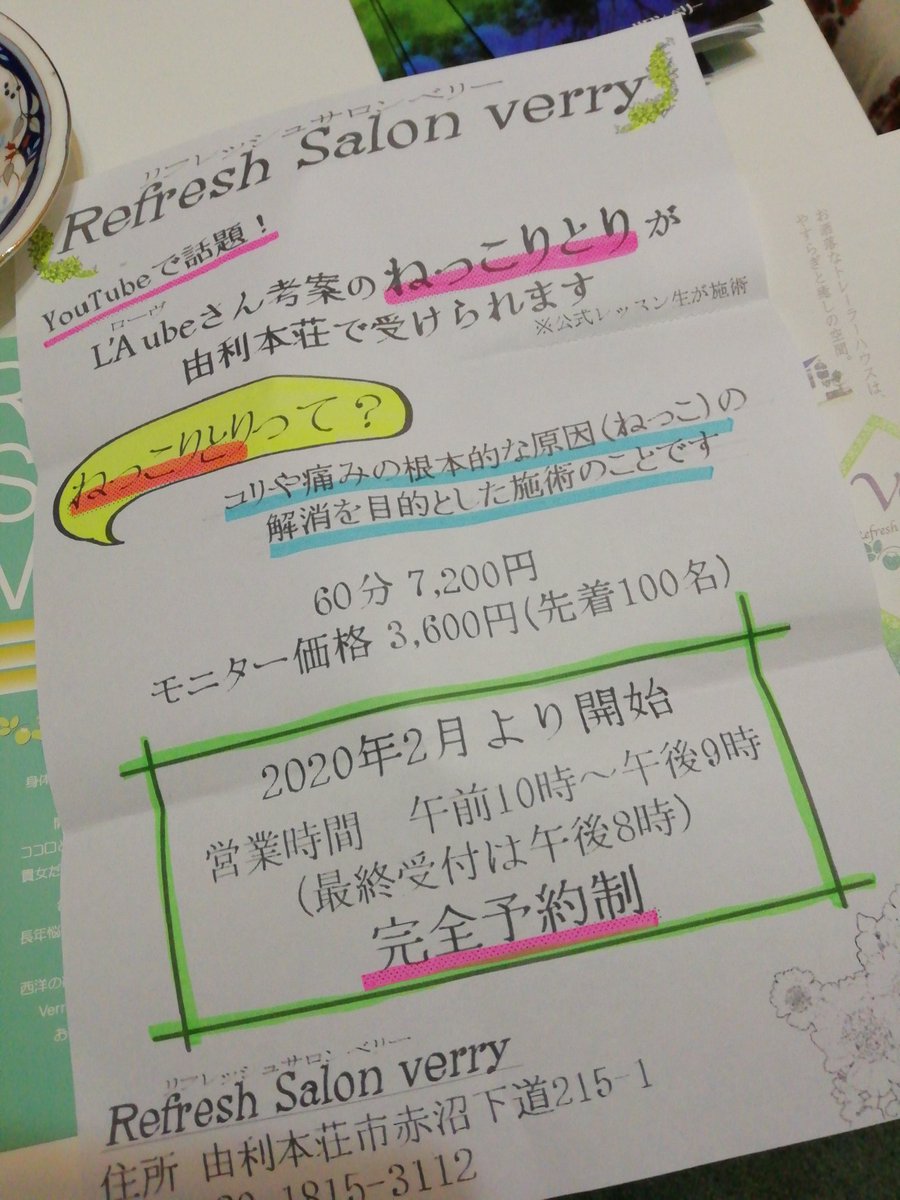 リーレッシュサロンベリー
Refresh Salon verry
YouTubeで話題!
ローヴ
L'Aubeさん考案のねっこりとりが
由利本荘で受けられます
※公式レッスン生が施術
ねっこりとりって?
コリや痛みの根本的な原因(ねっこ)の
解消を目的とした施術のことです
60分 7,200円
モニター価格 3,600円(先着100名)
2020年2月より開始
営業時間 午前10時~午後9時
(最終受付は午後8時)
完全予約制
リーレッシュサロンベリー
Refresh Salon verry
住所 由利本荘市赤沼下道215-1
1815-3112
お洒落なトレーラーハウスは、
やすらぎと癒しの空間。
Refresh
身体
ココロと
貴女だ
長年悩
西洋の
Verr
お